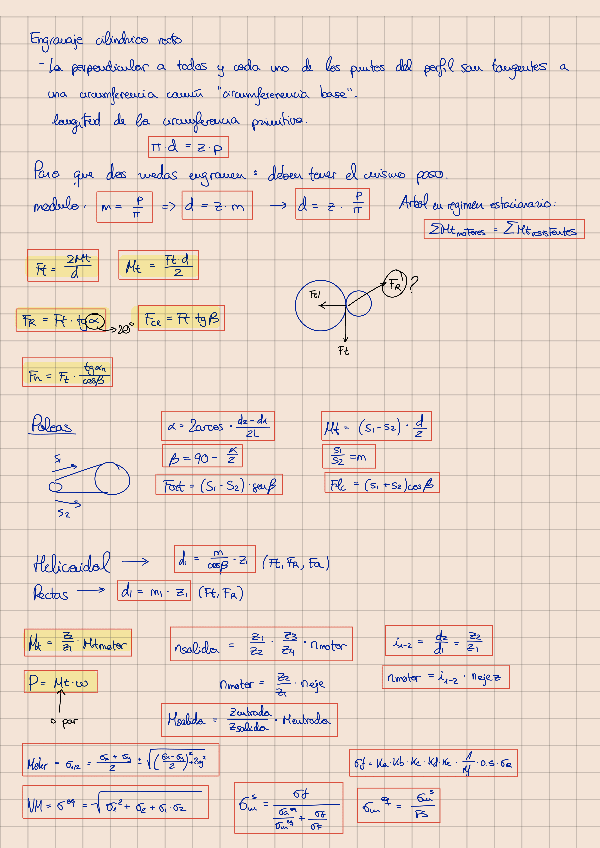 Engranaje cilindrico recto
- La perpendicular a todos y cada uno de los puntos del perfil son tangentes a
una circumferencia común "circumferencia base".
longitud de la circumferencia primitiva.
π · d = z · p
Para que dos ruedas engranen: deben tener el mismo paso.
modulo: m = p/π => d = z · m → d = z · p/π
Arbol en regimen estacionario:
ΣMt motores = ΣMt resistentes
Ft = 2Mt/d
Mt = Ft·d/2
FR = Ft · tg α → 20°
Fce = Ft tg β
Fr1
FR1?
Ft
Fr = Ft · tgαn/cosβ
Poleas
α = 2arcos · d2-d1/2L
Mt = (S1-S2) · d/2
β = 90 - α/2
S1/S2 = m
S1
S2
= (S1 - S2) · senβ
= (S1 + S2) cosβ
Helicoidal → d1 = m/cosβ · z1 (Ft, FR, Fa)
Rectas → d1 = m1 · z1 (Ft, FR)
Mt = z2/z1 · Mtmotor
nsalida = z1/z2 · z3/z4 · nmotor
i1-2 = d2/d1 = z2/z1
P = Mt · ω
o par
nmotor = z2/z1 · neje
nmotor = i1-2 · neje2
Msalida = zentrada/zsalida · Mentrada
Mohr = σ1,2 = σx + σy/2 ± √(
σf = Ka · Kb · Kc · Kd · Ke · 1/Kf · 0.5 · σR
VM = σeq = √σ1² + σ2 + σ1 · σ2